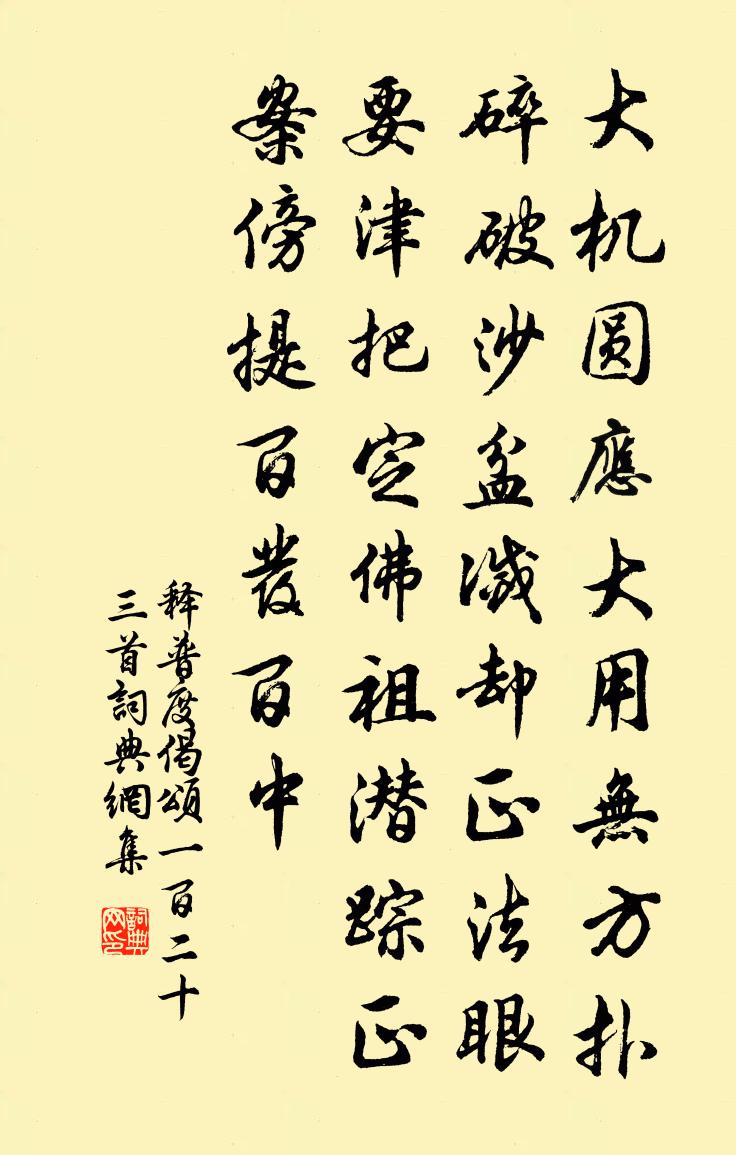 大机圆應大用無方扑
碎破沙盆滅却正法眼
要津把定佛祖潜踪正
案傍提百發百中
释普度偈頌一百二十
三首詞典網集
詞典网印